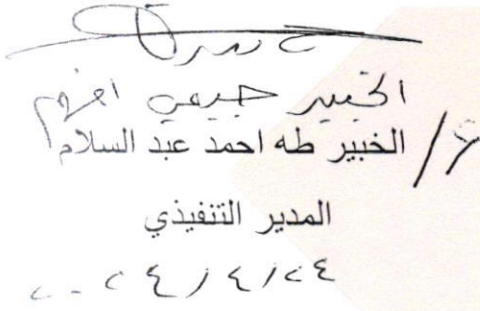 الخبير
ع/ الخبير طه احمد عبد السلام
المدير التنفيذي
٢٠٢٤/٤/٢٤